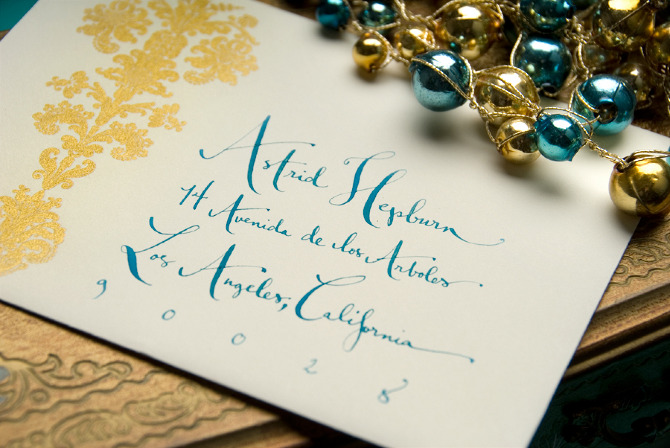 Astrid Hepburn
14 Avenida de los Arboles
Los Angeles, California
90028